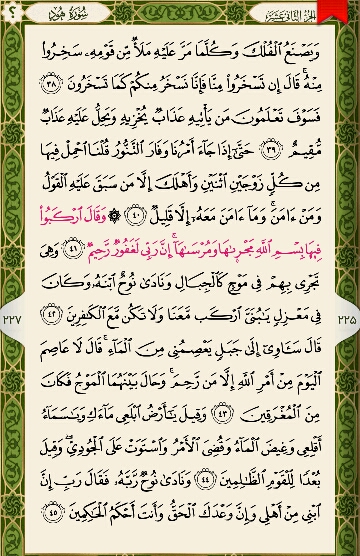 سُورَةُ هُودٍ
الجزء الثاني عشر
وَيَصْنَعُ ٱلْفُلْكَ وَكُلَّمَا مَرَّ عَلَيْهِ مَلَأٌ مِّن قَوْمِهِۦ سَخِرُوا۟
مِنْهُ ۚ قَالَ إِن تَسْخَرُوا۟ مِنَّا فَإِنَّا نَسْخَرُ مِنكُمْ كَمَا تَسْخَرُونَ ٣٨
فَسَوْفَ تَعْلَمُونَ مَن يَأْتِيهِ عَذَابٌ يُخْزِيهِ وَيَحِلُّ عَلَيْهِ عَذَابٌ
مُّقِيمٌ ٣٩ حَتَّىٰٓ إِذَا جَآءَ أَمْرُنَا وَفَارَ ٱلتَّنُّورُ قُلْنَا ٱحْمِلْ فِيهَا
مِن كُلٍّ زَوْجَيْنِ ٱثْنَيْنِ وَأَهْلَكَ إِلَّا مَن سَبَقَ عَلَيْهِ ٱلْقَوْلُ
وَمَنْ ءَامَنَ ۚ وَمَآ ءَامَنَ مَعَهُۥٓ إِلَّا قَلِيلٌ ٤٠ ۞ وَقَالَ ٱرْكَبُوا۟
فِيهَا بِسْمِ ٱللَّهِ مَجْر۪ىٰهَا وَمُرْسَىٰهَآ ۚ إِنَّ رَبِّى لَغَفُورٌ رَّحِيمٌ ٤١ وَهِىَ
تَجْرِى بِهِمْ فِى مَوْجٍ كَٱلْجِبَالِ وَنَادَىٰ نُوحٌ ٱبْنَهُۥ وَكَانَ
فِى مَعْزِلٍ يَٰبُنَىَّ ٱرْكَب مَّعَنَا وَلَا تَكُن مَّعَ ٱلْكَٰفِرِينَ ٤٢
قَالَ سَـَٔاوِىٓ إِلَىٰ جَبَلٍ يَعْصِمُنِى مِنَ ٱلْمَآءِ ۚ قَالَ لَا عَاصِمَ
ٱلْيَوْمَ مِنْ أَمْرِ ٱللَّهِ إِلَّا مَن رَّحِمَ ۚ وَحَالَ بَيْنَهُمَا ٱلْمَوْجُ فَكَانَ
مِنَ ٱلْمُغْرَقِينَ ٤٣ وَقِيلَ يَٰٓأَرْضُ ٱبْلَعِى مَآءَكِ وَيَٰسَمَآءُ
أَقْلِعِى وَغِيضَ ٱلْمَآءُ وَقُضِىَ ٱلْأَمْرُ وَٱسْتَوَتْ عَلَى ٱلْجُودِىِّ ۖ وَقِيلَ
بُعْدًا لِّلْقَوْمِ ٱلظَّٰلِمِينَ ٤٤ وَنَادَىٰ نُوحٌ رَّبَّهُۥ فَقَالَ رَبِّ إِنَّ
ٱبْنِى مِنْ أَهْلِى وَإِنَّ وَعْدَكَ ٱلْحَقُّ وَأَنتَ أَحْكَمُ ٱلْحَٰكِمِينَ ٤٥
٢٢٥
٢٢٧
؟